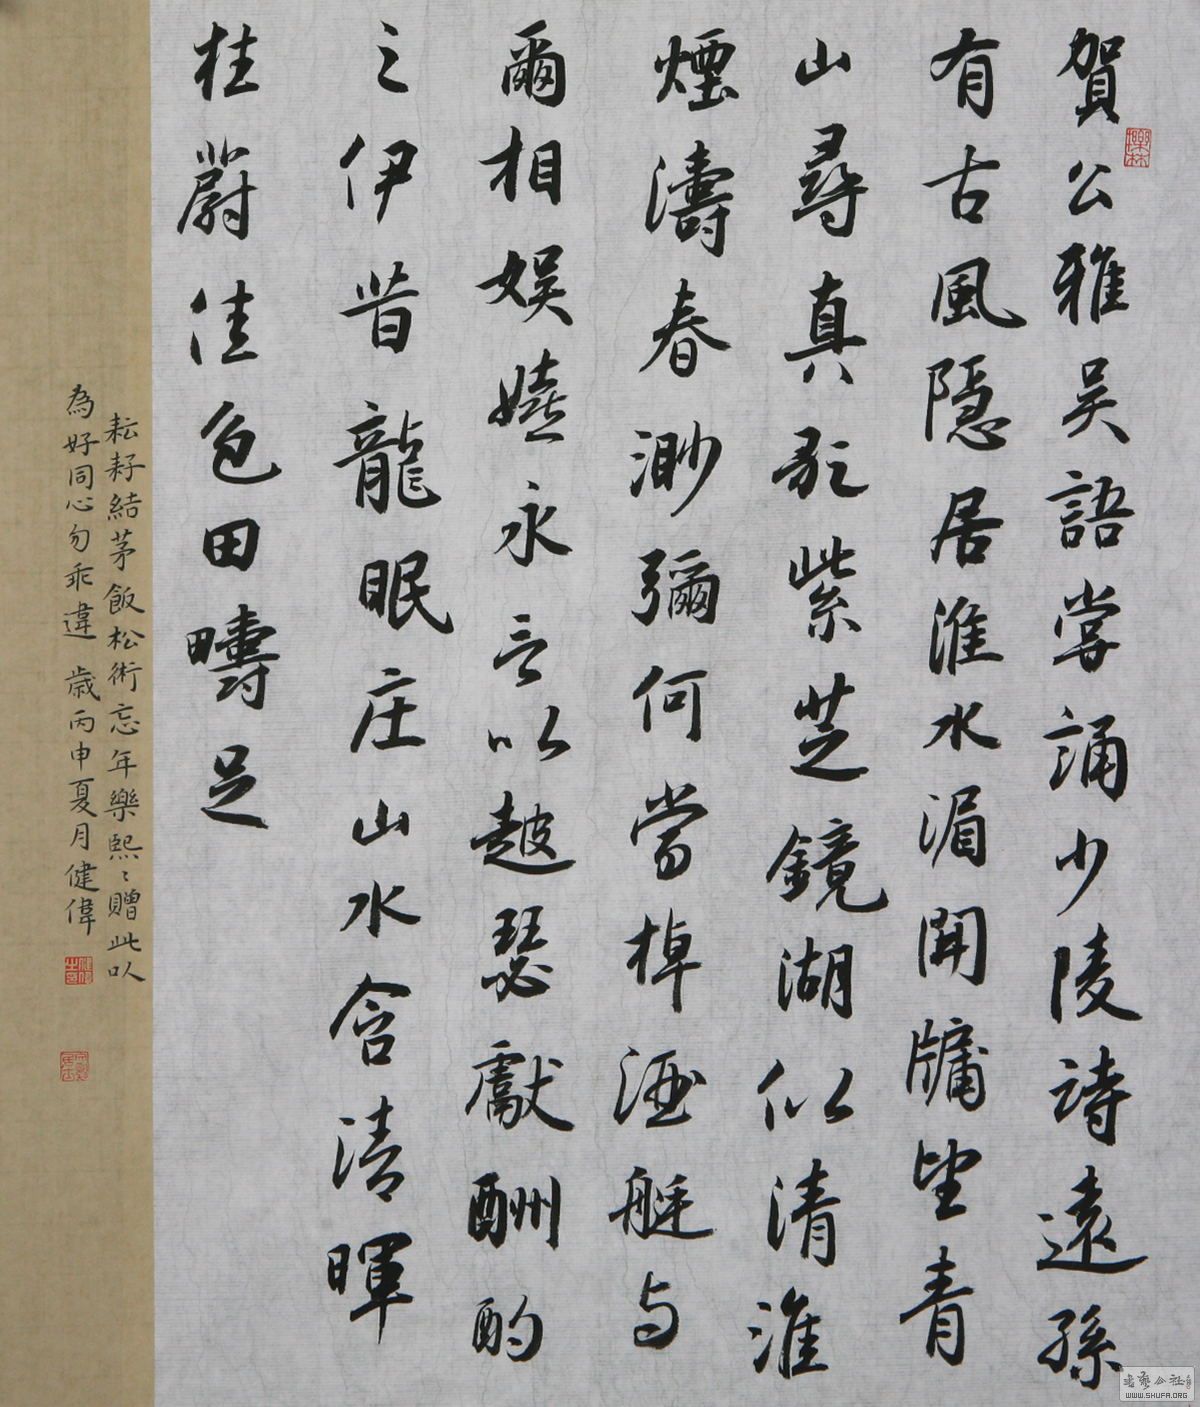 賀公雅吳語嘗誦少陵詩遠孫
有古風隱居淮水湄開牖望青
山尋真歌紫芝鏡湖似清淮
煙濤春渺彌何當棹酒艇与
爾相娛嬉永言以越瑟獻酬酌
之伊昔龍眠庄山水含清暉
桂蔚佳色田疇足
耘耔結茅飯松術忘年樂熙〻贈此以
為好同心勿乖違 歲丙申夏月健偉
WWW.SHUFA.ORG